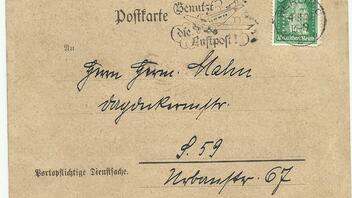 Postkarte
Benutzt
die
Luftpost!
Deutsches Reich
An
Herrn Herm. Mahn
S. 59
Urbanstr. 67
Portopflichtige Dienstsache.